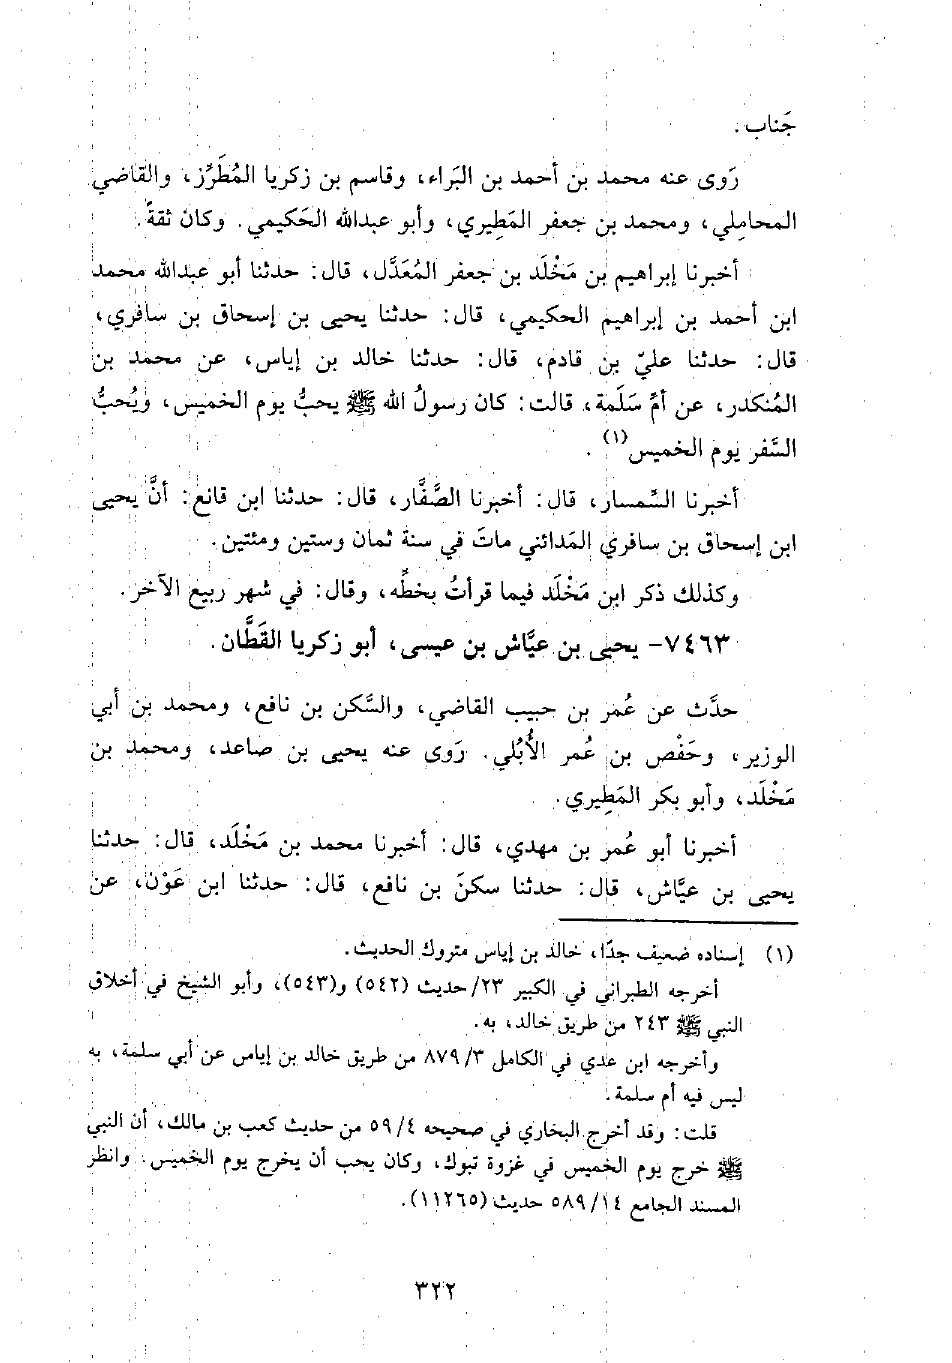 جَناب .
رَوى عنه محمد بن أحمد بن البَراء، وقاسم بن زكريا المُطَرِّز، والقاضي
المحاملي، ومحمد بن جعفر المَطِيري، وأبو عبدالله الحَكيمي. وكان ثقةً.
أخبرنا إبراهيم بن مَخْلَد بن جعفر المُعَدَّل، قال: حدثنا أبو عبدالله محمد
ابن أحمد بن إبراهيم الحكيمي، قال: حدثنا يحيى بن إسحاق بن سافري،
قال: حدثنا عليّ بن قادم، قال: حدثنا خالد بن إياس، عن محمد بن
المُنكدر، عن أمِّ سَلَمة، قالت: كان رسولُ الله ﷺ يحبُّ يوم الخميس، ويُحبُّ
السَّفر يوم الخميس(١) .
أخبرنا السِّمسار، قال: أخبرنا الصَّفَّار، قال: حدثنا ابن قانع: أنَّ يحيى
ابن إسحاق بن سافري المَدائني ماتَ في سنة ثمان وستين ومئتين.
وكذلك ذكر ابن مَخْلَد فيما قرأتُ بخطِّه، وقال: في شهر ربيع الآخر.
٧٤٦٣- يحيى بن عيَّاش بن عيسى، أبو زكريا القَطَّان.
حدَّث عن عُمر بن حبيب القاضي، والسَّكن بن نافع، ومحمد بن أبي
الوزير، وحَفْص بن عُمر الأُبُلي. رَوى عنه يحيى بن صاعد، ومحمد بن
مَخْلَد، وأبو بكر المَطِيري.
أخبرنا أبو عُمر بن مهدي، قال: أخبرنا محمد بن مَخْلَد، قال: حدثنا
يحيى بن عيَّاش، قال: حدثنا سكنَ بن نافع، قال: حدثنا ابن عَوْن، عن
(١) إسناده ضعيف جدًا، خالد بن إياس متروك الحديث.
أخرجه الطبراني في الكبير ٢٣/ حديث (٥٤٢) و(٥٤٣)، وأبو الشيخ في أخلاق
النبي ﷺ ٢٤٣ من طريق خالد، به.
وأخرجه ابن عدي في الكامل ٣/ ٨٧٩ من طريق خالد بن إياس عن أبي سلمة، به
ليس فيه أم سلمة.
قلت: وقد أخرج البخاري في صحيحه ٤/ ٥٩ من حديث كعب بن مالك، أن النبي
ﷺ خرج يوم الخميس في غزوة تبوك، وكان يحب أن يخرج يوم الخميس. وانظر
المسند الجامع ١٤/ ٥٨٩ حديث (١١٢٦٥).
٣٢٢